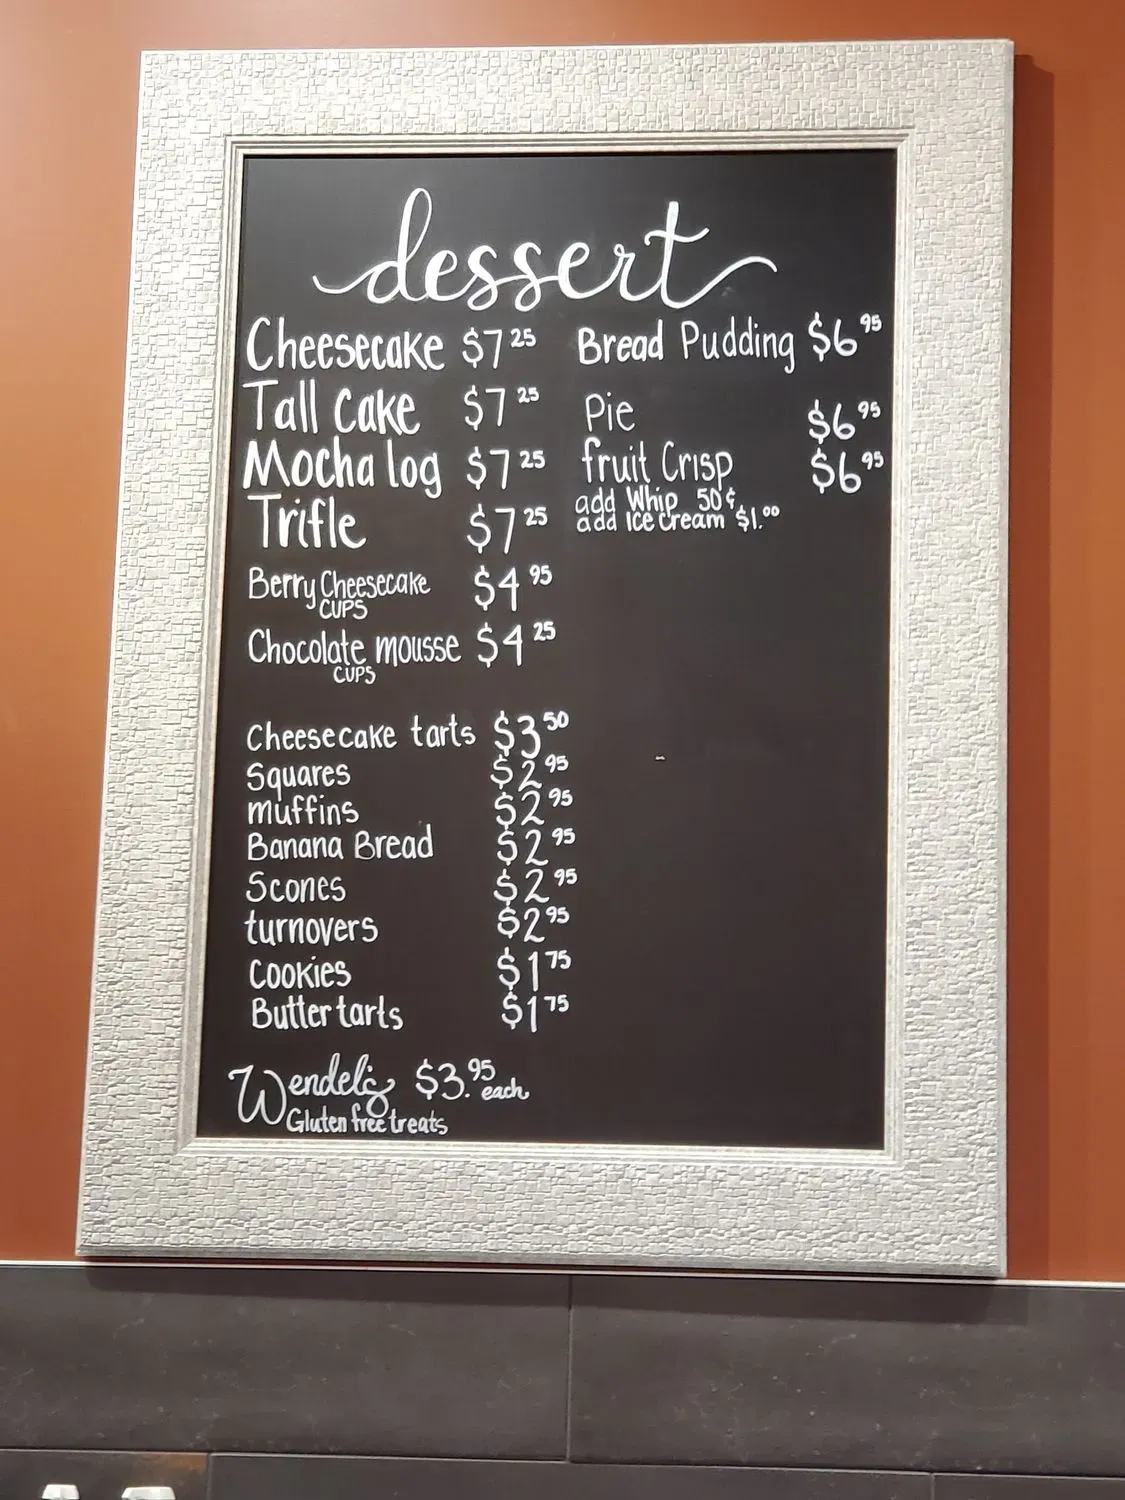 dessert
Cheesecake $7 25
Tall Cake $7 25
Mocha log $7 25
Trifle $7 25
Berry Cheesecake $4 95
CUPS
Chocolate mousse $4 25
CUPS
Cheesecake tarts $3 50
Squares $2 95
muffins $2 95
Banana Bread $2 95
Scones $2 95
turnovers $2 95
Cookies $1 75
Butter tarts $1 75
Wendel's $3.95 each
Gluten free treats
Bread Pudding $6 95
Pie $6 95
fruit Crisp $6 95
add Whip 50¢
add Ice Cream $1.00